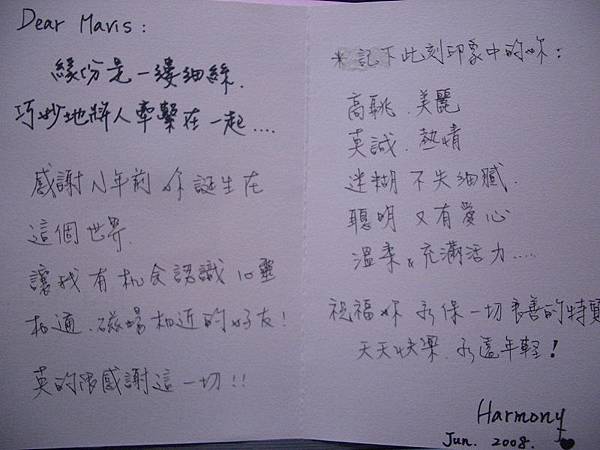 Dear Mavis:
緣份是一縷細絲.
巧妙地將人牽繫在一起....
感謝N年前 妳誕生在
這個世界.
讓我有机会認識心靈
相通.磁場相近的好友!
真的很感謝這一切!!
*記下此刻印象中的妳:
高䠷.美麗
真誠.熱情
迷糊 不失細膩.
聰明 又有愛心
溫柔&充滿活力....
祝福妳 永保一切良善的特質
天天快樂.永遠年輕!
Harmony
Jun. 2008.